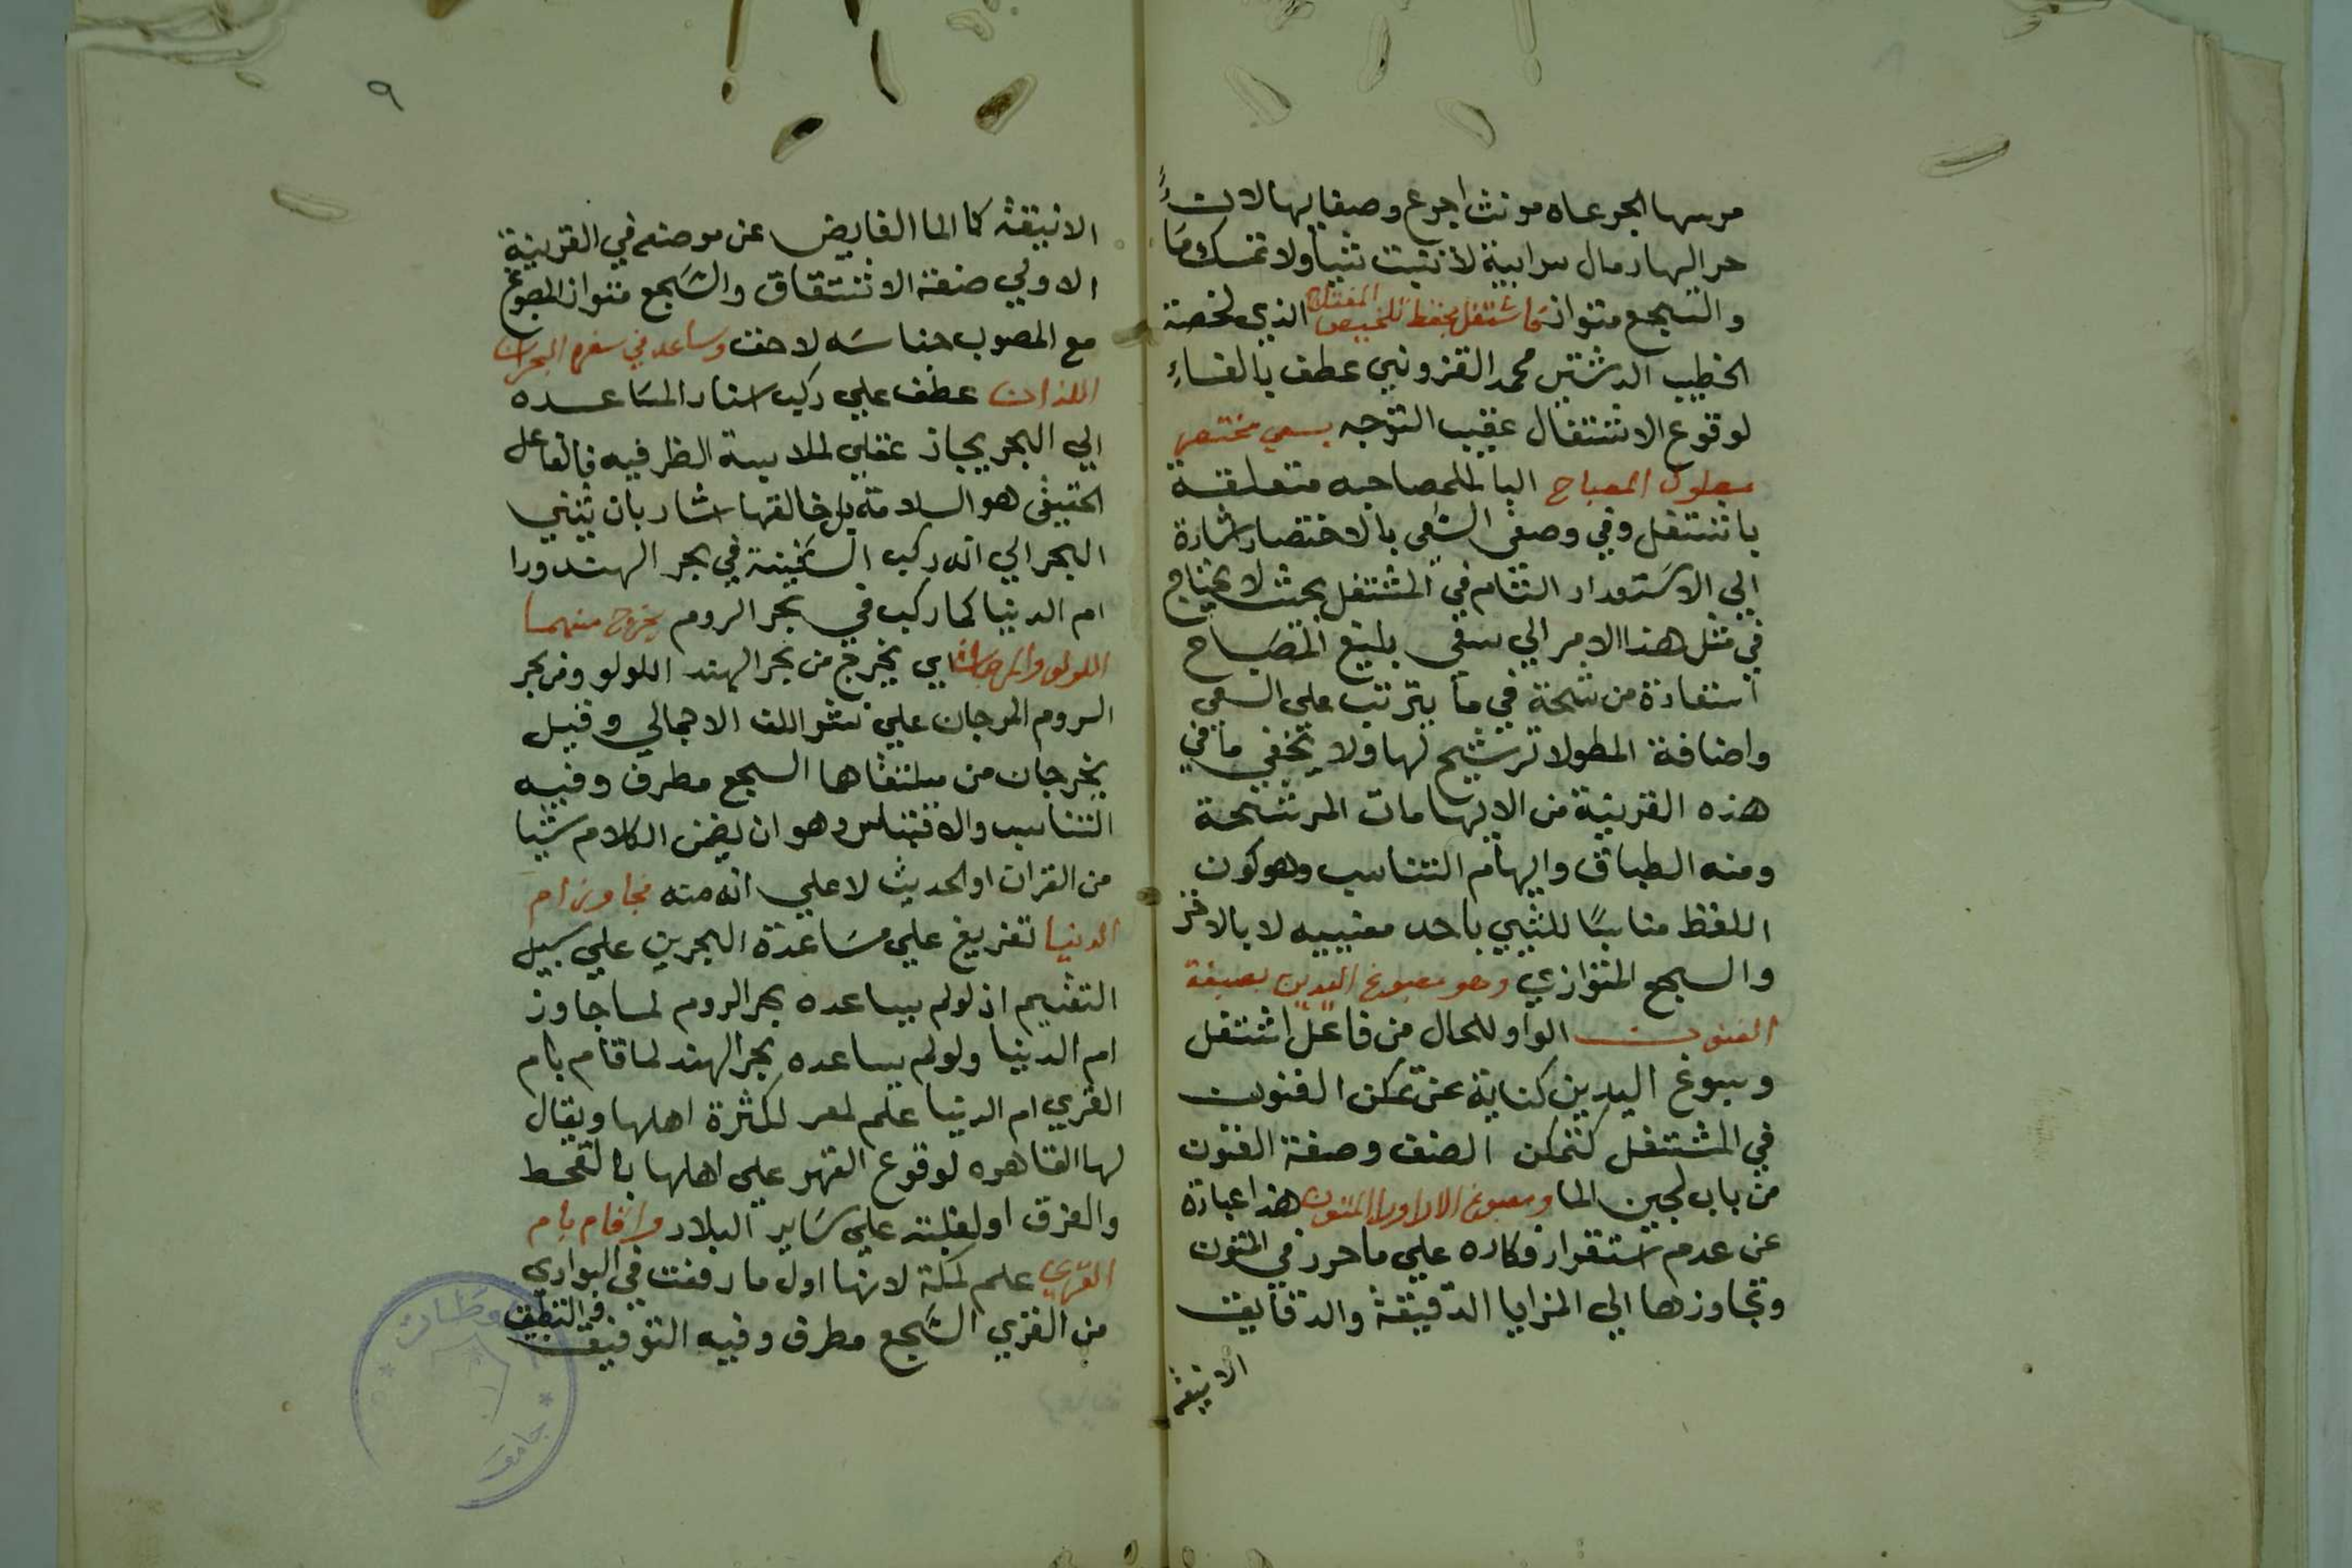 مرسها الجرعاه مونث اجرع وصفا بها لان
حر اليها رمال سرابية لا تنبت شيا ولا تمسك ما
والسجع متواز فاشتغل بحفظ تلخيص المفتاح الذي لخصة
الخطيب الدمشقي محمد القزويني عطف بالفاء
لوقوع الاشتغال عقيب التوجه بسعي مختصر
مطول المصباح البا للمصاحبه متعلقة
باشتغل وفي وصف السعى بالاختصار اشارة
الي الاستعداد التام في المشتغل بحيث لا يحتاج
في مثل هذا الامر الي سعى بليغ المصباح
استعارة مرشحة في ما يترتب على السعي
واضافة المطول ترشيح لها ولا يخفي ما في
هذه القرينة من الايهامات المرشحة
ومنه الطباق وايهام التناسب وهو كون
اللفظ مناسبا للشي باحد معنييه لا بالاخر
والسجع المتوازي وهو مصبوغ اليدين بصبغة
الفنون الواو للحال من فاعل اشتغل
وصبوغ اليدين كناية عن تمكن الفنون
في المشتغل كتمكن الصنف وصفة الفنون
من باب لجين الما ومصبوغ الاراورا المتون هذا عبارة
عن عدم استقرار فكاره علي ما حرر في المتون
وتجاوزها الي المزايا الدقيقة والدقايق
الانيقة
٩
الانيقة كما الما الفايض عن موضعه في القرينة
الاولي صنعة الاشتقاق والسجع متواز المصبوغ
مع المصوب جناسه لاحق وساعد في سفره البحران
اللذان عطف علي ركب اسناد المساعده
الي البحر مجاز عقلي لملابسة الظرفيه فالفاعل
الحقيقي هو السلامة بل خالقها اشار بان يثني
البحر الي انه ركب السفينة في بحر الهند ورا
ام الدنيا كما ركب في بحر الروم يخرج منهما
اللولو والمرجان اي يخرج من بحر الهند اللولو ومن بحر
الروم المرجان علي نشو اللف الاجمالي وقيل
يخرجان من ملتقاها السجع مطرف وفيه
التناسب والاقتباس وهو ان يضمن الكلام شيا
من القران او الحديث لا علي انه منه فجاوز ام
الدنيا تفريع علي مساعدة البحرين علي سبيل
التقسيم اذ لولم يساعده بحر الروم لما جاوز
ام الدنيا ولولم يساعده بحر الهند لما قام بام
القري ام الدنيا علم لمصر لكثرة اهلها ويقال
لها القاهره لوقوع القهر علي اهلها بالقحط
والغرق او لغلبته علي ساير البلاد واقام بام
القري علم لمكة لانها اول ما رفعت في البوادي
من القري السجع مطرف وفيه التوفيق والتطبيق
جامعة